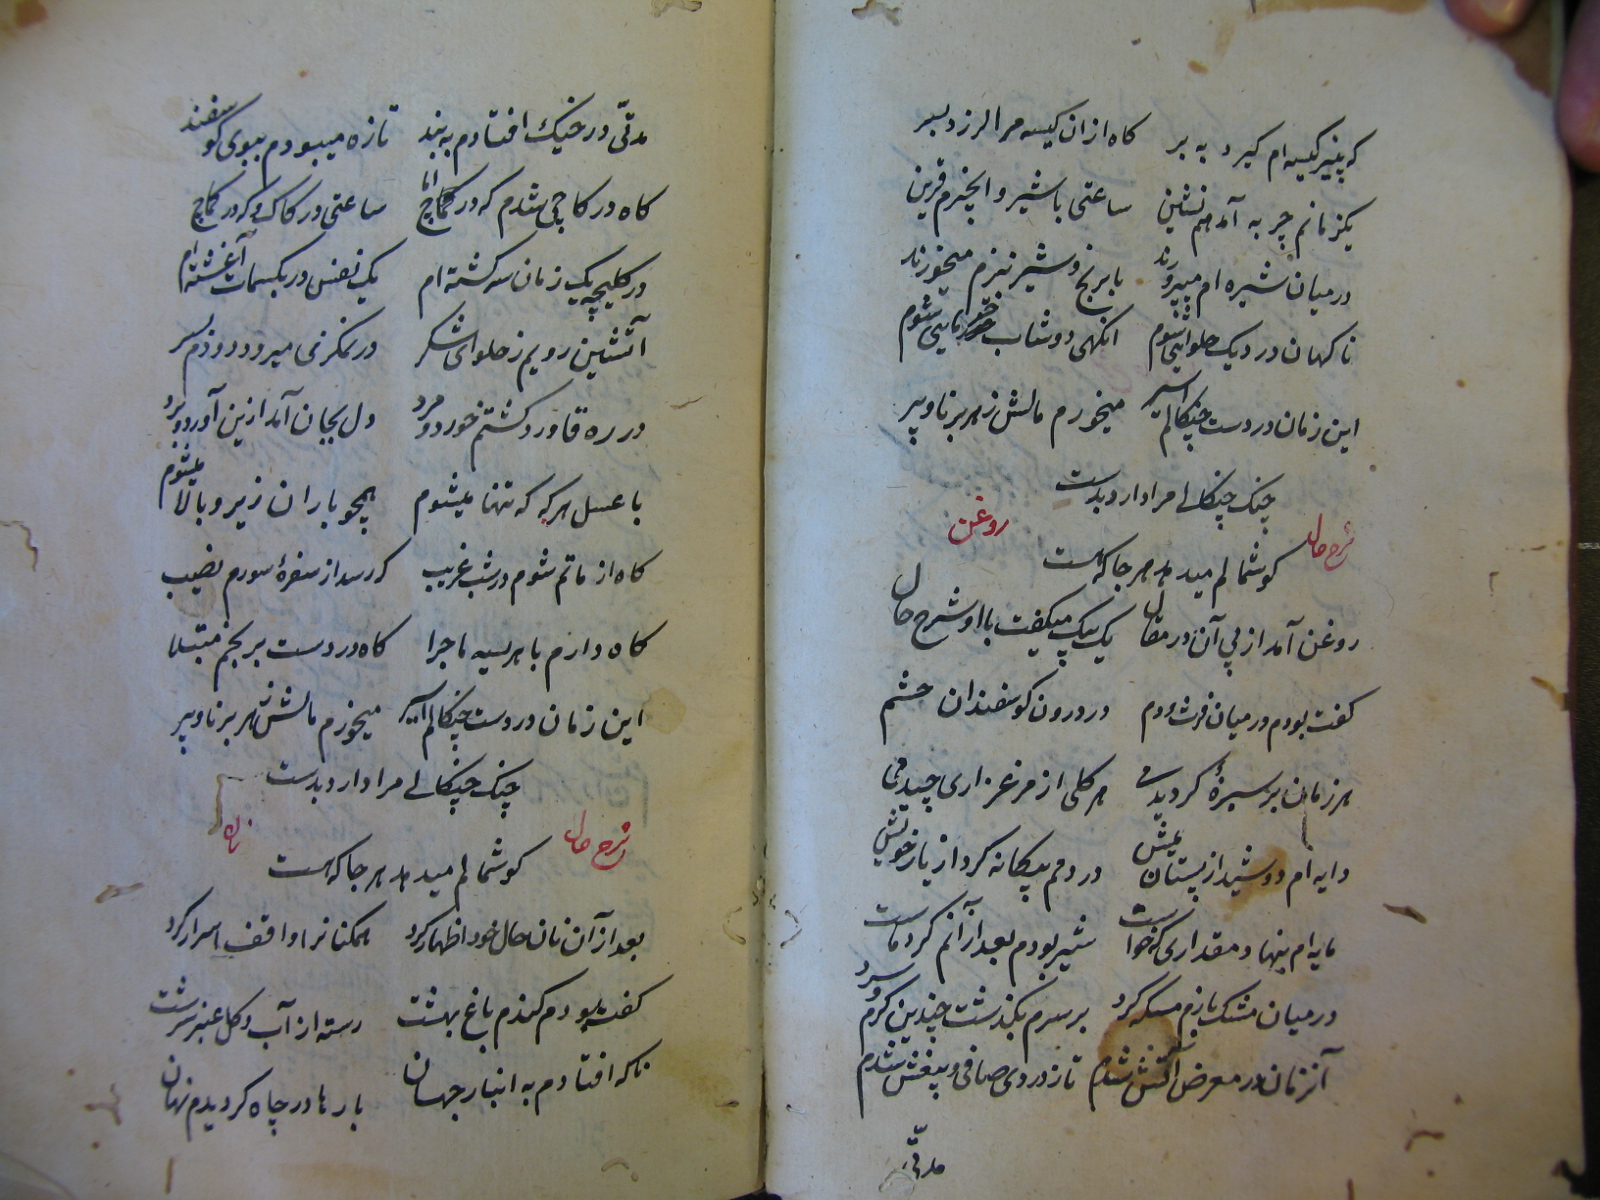 که پنیر کیسه ام گیرد به بر کاه ازان کیسه مرا لرزد بسر
یکزمانم چربه آمد همنشین ساعتی باشیر و انجیرم قرین
در میان شیره ام میپرورند بابرنج و شیر نیزم میخورند
ناکهان در دیک حلوائی شوم انکهی دوشاب خرمایی شوم
این زمان در دست چنکالم اسیر میخورم مالش زهر برنا و پیر
چنک چنکالی مرا دارد بدست
شرح حال روغن
کوشمالم میدهد هر جا که هست
روغن آمد از پی آن در مقال یک بیک میکفت با او شرح حال
کفت بودم در میان فرث و دم در درون کوسفندان حشم
هر زمان بر سبزهٔ کردیدمی هر کلی از مرغزاری چیدمی
دایه ام دوشید از پستان میش در دمم بیکانه کرد از یار خویش
مایه ام بنهاد و مقداری که خواست شیر بودم بعد از آنم کرد ماست
در میان مشک بازم مسکه کرد بر سرم بکذشت چندین کرم و سرد
آنزمان در معرض آتش شدم تازه روی صافی و بیغش شدم
مدتی
مدتی در خیک افتادم به بند تازه میبودم ببوی کوسفند
کاه در کاچی شدم که در کماج ساعتی در کاک و که در کماج
در کلیچه یک زمان سرکشته ام یک نفس در بکسمات آغشته ام
آتشین رویم ز حلوای شکر در نمکزمی میرود دودم بسر
در ره قاورد کشتم خورد و مرد دل بجان آمد ازین آورد و برد
با عسل هرکه که تنها میشوم همچو باران زیر و بالا میشوم
کاه از ماتم شوم در شب غریب که رسد از سفرهٔ سورم نصیب
کاه دارم با هریسه ماجرا کاه در دست برنجم مبتلا
این زمان در دست چنکالم اسیر میخورم مالش زهر برنا و پیر
چنک چنکالی مرا دارد بدست
شرح حال نان
کوشمالم میدهد هر جا که هست
بعد از آن نان حال خود اظهار کرد همکنانرا واقف اسرار کرد
کفت بودم کندم باغ بهشت رسته از آب و کل عنبر سرشت
ناکه افتادم به انبار جهان بارها در چاه کردیدم نهان